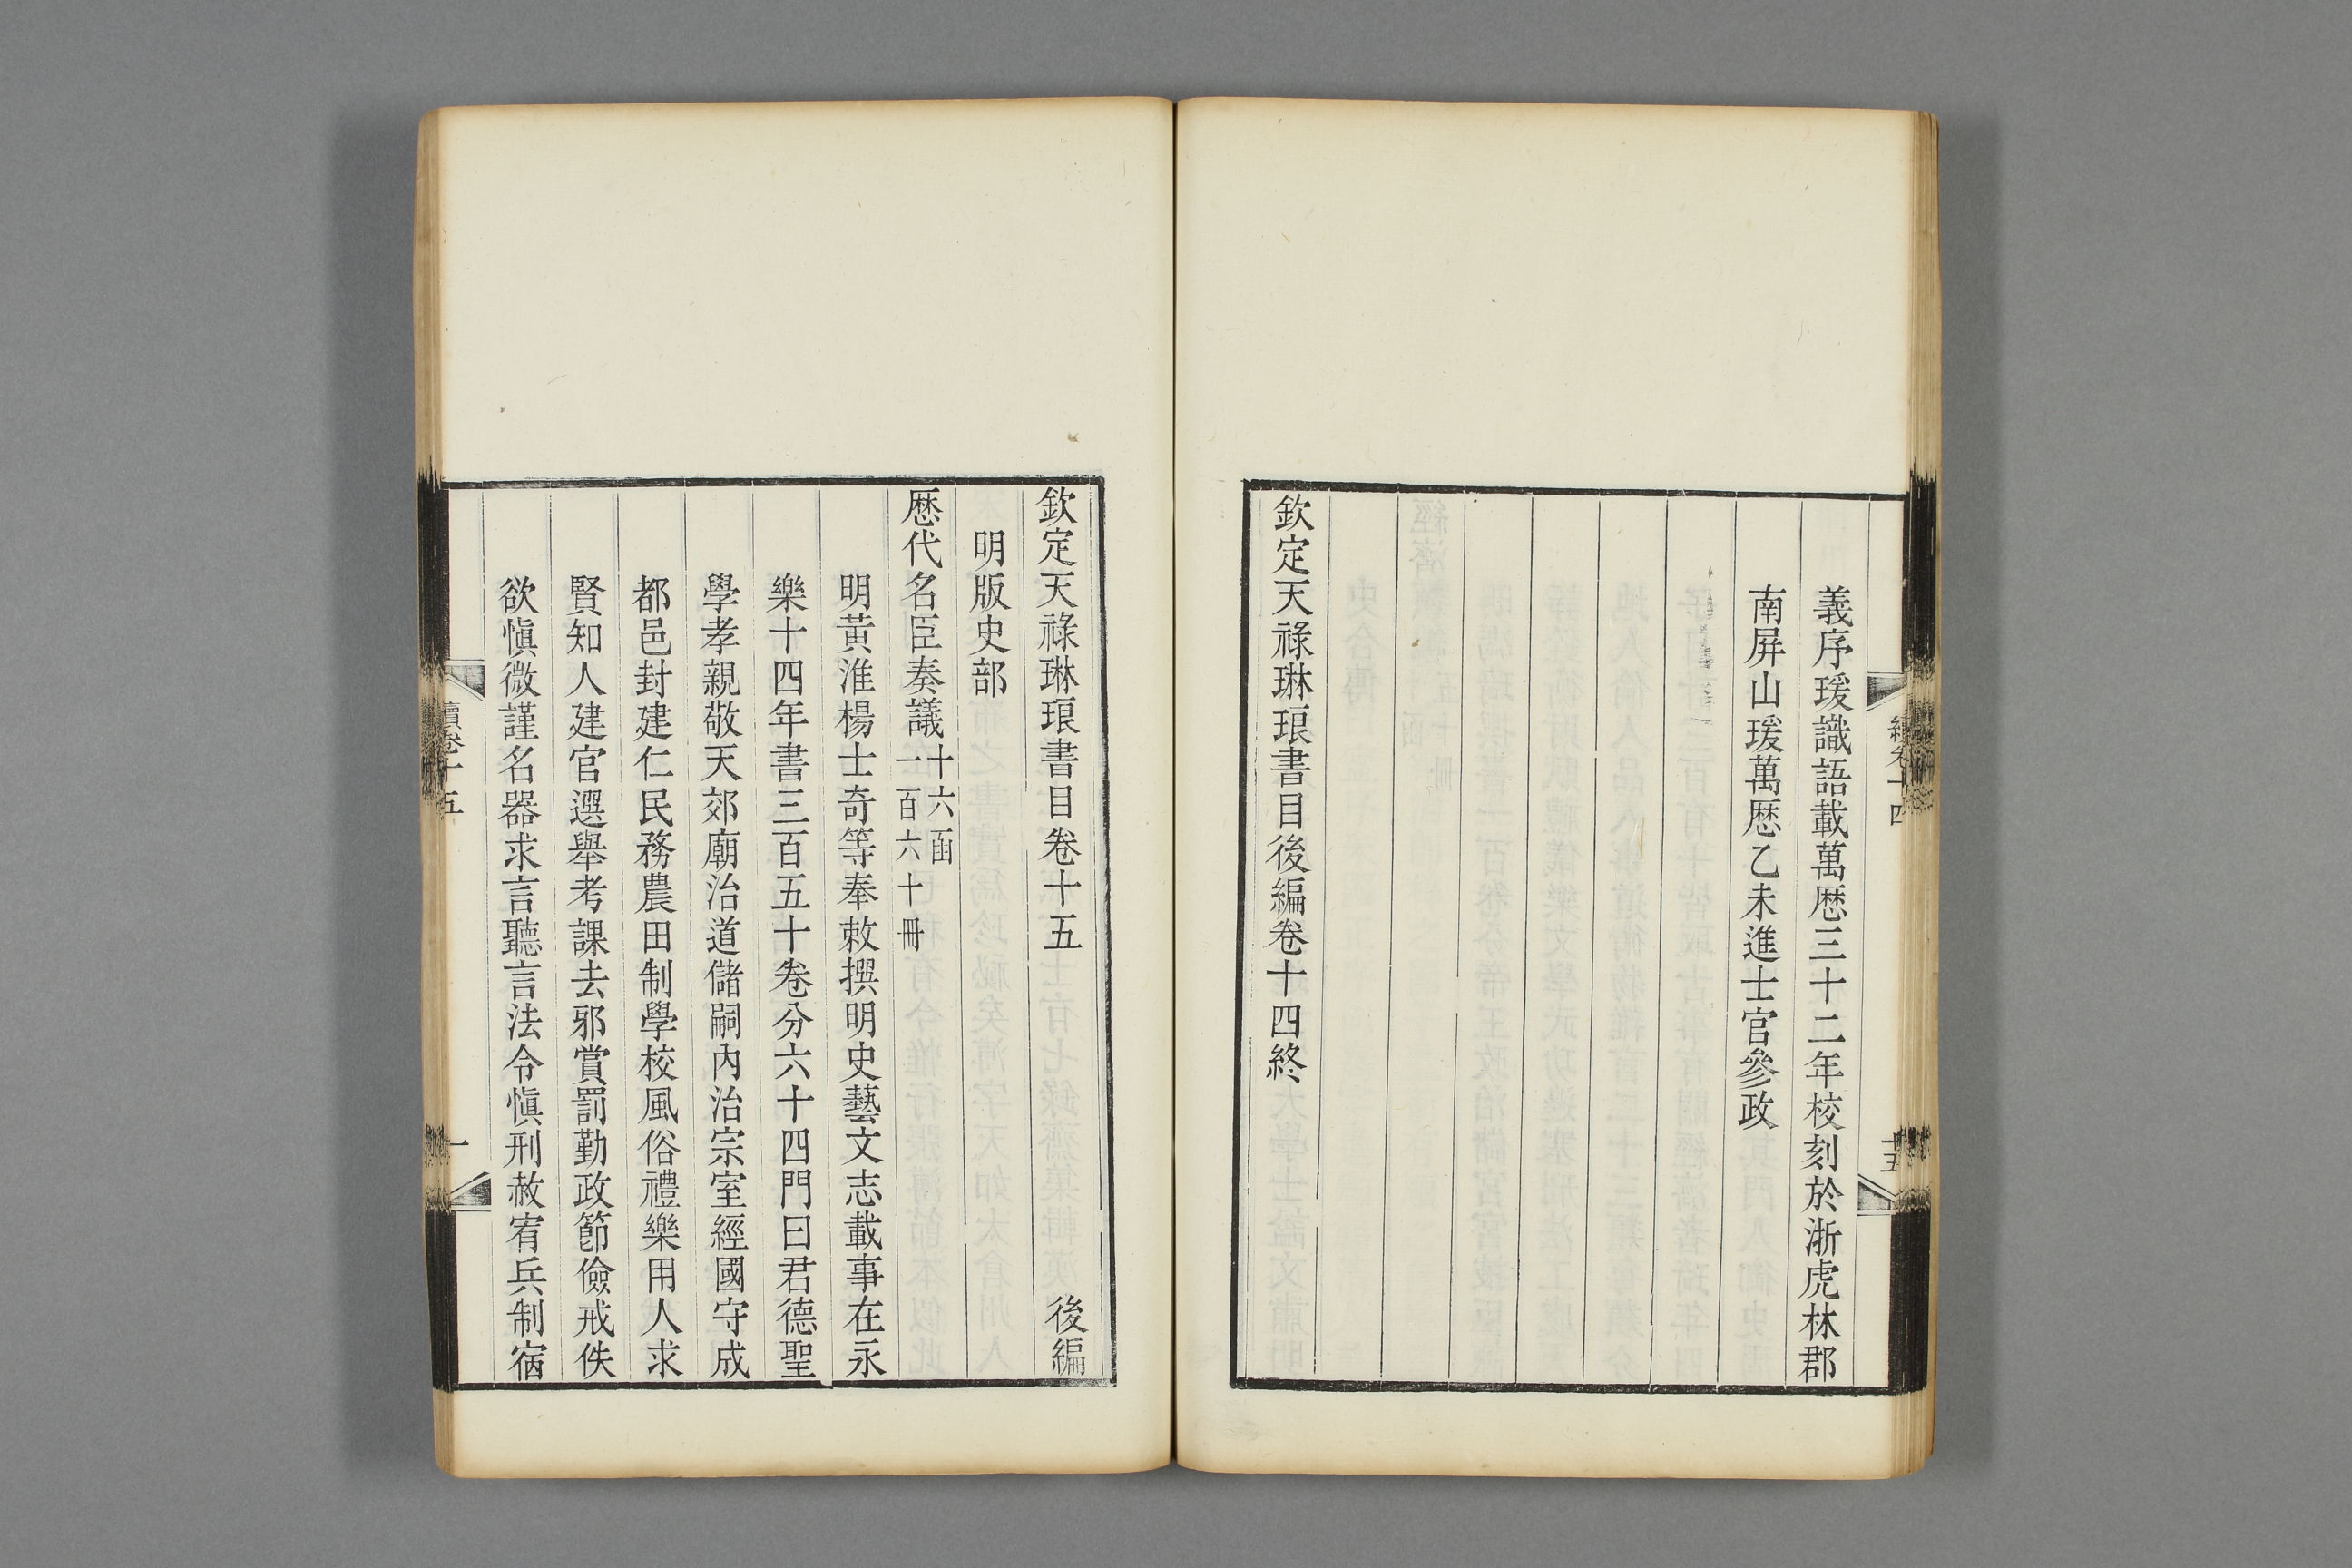 義序瑗識語載萬厯三十二年校刻於浙虎林郡
南屏山瑗萬厯乙未進士官參政
欽定天祿琳琅書目後編卷十四終
十五
欽定天祿琳琅書目卷十五 後編
明版史部
厯代名臣奏議十六函
一百六十冊
明黃淮楊士奇等奉敕撰明史藝文志載事在永
樂十四年書三百五十卷分六十四門曰君德聖
學孝親敬天郊廟治道儲嗣內治宗室經國守成
都邑封建仁民務農田制學校風俗禮樂用人求
賢知人建官選舉考課去邪賞罰勤政節儉戒佚
欲愼微謹名器求言聽言法令愼刑赦宥兵制宿
續卷十五
一